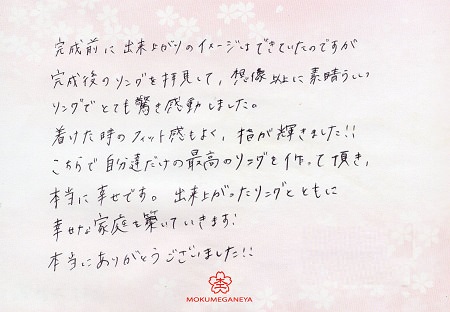 完成前に出来上がりのイメージはできていたのですが
完成後のリングを拝見して、想像以上に素晴らしい
リングでとても驚き感動しました。
着けた時のフィット感もよく、指が輝きました!!
こちらで自分達だけの最高のリングを作って頂き、
本当に幸せです。出来上がったリングとともに
幸せな家庭を築いていきます!
本当にありがとうございました!!
MOKUMEGANEYA